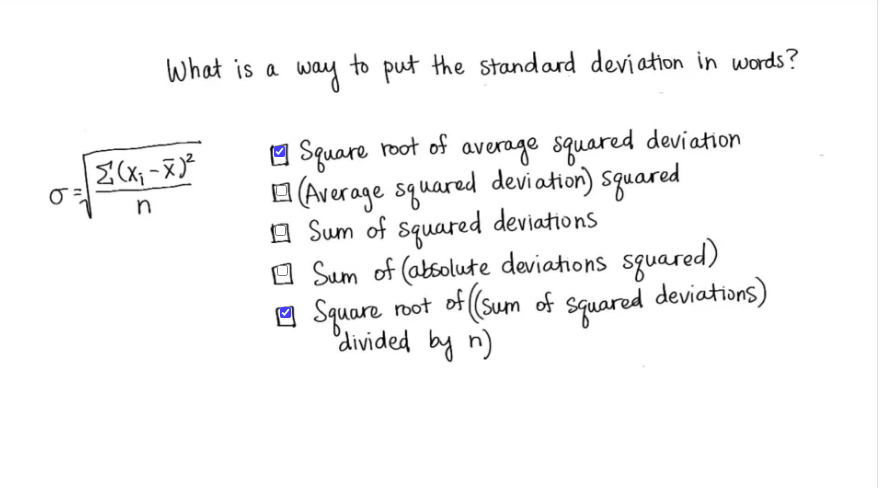 What is a way to put the standard deviation in words?
σ = √(Σ(xᵢ - x̄)² / n)
Square root of average squared deviation
(Average squared deviation) squared
Sum of squared deviations
Sum of (absolute deviations squared)
Square root of ((sum of squared deviations)
divided by n)